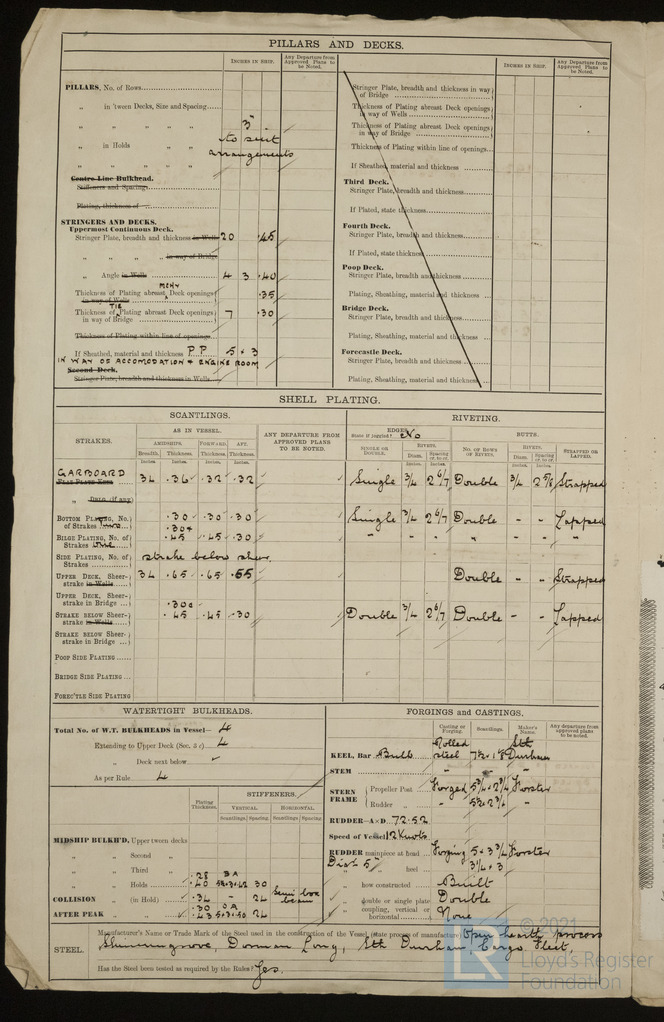 PILLARS AND DECKS.
INCHES IN SHIP.
Any Departure from Approved Plans to be Noted.
PILLARS, No. of Rows
„ in 'tween Decks, Size and Spacing
„ „ „ „ 3"
„ in Holds „ to suit
„ „ „ „ arrangements
Centre Line Bulkhead.
Stiffeners and Spacing
Plating, thickness of
STRINGERS AND DECKS.
Uppermost Continuous Deck.
Stringer Plate, breadth and thickness in Wells 20 .45
„ „ „ „ in way of Bridge
„ Angle in Wells 4 3 .40
Thickness of Plating abreast MCHY Deck openings in way of Wells .35
Thickness of TIE Plating abreast Deck openings in way of Bridge 7 .30
Thickness of Plating within line of openings
If Sheathed, material and thickness P P 5 x 3
IN WAY OF ACCOMODATION & ENGINE ROOM
Second Deck.
Stringer Plate, breadth and thickness in Wells
INCHES IN SHIP.
Any Departure from Approved Plans to be Noted.
Stringer Plate, breadth and thickness in way of Bridge
Thickness of Plating abreast Deck openings in way of Wells
Thickness of Plating abreast Deck openings in way of Bridge
Thickness of Plating within line of openings
If Sheathed, material and thickness
Third Deck.
Stringer Plate, breadth and thickness
If Plated, state thickness
Fourth Deck.
Stringer Plate, breadth and thickness
If Plated, state thickness
Poop Deck.
Stringer Plate, breadth and thickness
Plating, Sheathing, material and thickness
Bridge Deck.
Stringer Plate, breadth and thickness
Plating, Sheathing, material and thickness
Forecastle Deck.
Stringer Plate, breadth and thickness
Plating, Sheathing, material and thickness
SHELL PLATING.
SCANTLINGS.
RIVETING.
STRAKES.
AS IN VESSEL.
AMIDSHIPS. FORWARD. AFT.
Breadth. Thickness. Thickness. Thickness.
Inches. Inches. Inches. Inches.
ANY DEPARTURE FROM APPROVED PLANS TO BE NOTED.
EDGES. State if joggled? No
SINGLE OR DOUBLE.
RIVETS.
Diam. Spacing cr. to cr.
BUTTS.
No. OF ROWS OF RIVETS.
RIVETS.
Diam. Spacing cr. to cr.
STRAPPED OR LAPPED.
GARBOARD 34 .36 .32 .32 Single 3/4 2 6/7 Double 3/4 2 5/8 Strapped
„ Dbng. (if any)
BOTTOM PLATING, No. of Strakes .30 .30 .30 Single 3/4 2 6/7 Double „ „ Lapped
BILGE PLATING, No. of Strakes .45 .45 .30 „ „ „ „ „ „ „
SIDE PLATING, No. of Strakes strake below sheer
UPPER DECK, Sheer-strake in Wells 34 .65 .65 .55 Double „ „ Strapped
UPPER DECK, Sheer-strake in Bridge
STRAKE BELOW Sheer-strake in Wells .45 .45 .30 Double 3/4 2 6/7 Double „ „ Lapped
STRAKE BELOW Sheer-strake in Bridge
POOP SIDE PLATING
BRIDGE SIDE PLATING
FOREC'TLE SIDE PLATING
WATERTIGHT BULKHEADS.
Total No. of W.T. BULKHEADS in Vessel 4
Extending to Upper Deck (Sec. 3 c) 4
„ Deck next below
As per Rule 4
Plating Thickness.
STIFFENERS.
VERTICAL HORIZONTAL
Scantlings. Spacing. Scantlings. Spacing.
MIDSHIP BULKH'D, Upper tween decks
„ „ Second „
„ „ Third „
„ „ Holds .28 .40 BA 30
COLLISION „ (in Hold) .34 24 Semi box beam
AFTER PEAK „ „ .30 .43 5.3.50 24
FORGINGS and CASTINGS.
Casting or Forging. Scantlings. Maker's Name. Any departure from approved plans to be noted.
KEEL, Bar Bulb Rolled steel Sth Durham
STEM „ „ „
STERN FRAME Propeller Post Forged 5 3/4 x 2 3/4 Forster
Rudder „ „ „
RUDDER—A×D 72.52
Speed of Vessel 12 Knots
RUDDER mainpiece at head Forging 5 x 3 3/4 Forster
Dist 5" „ heel 3 1/4 x 3
„ how constructed Built
„ double or single plate Double
„ coupling, vertical or horizontal None
STEEL.
Manufacturer's Name or Trade Mark of the Steel used in the construction of the Vessel (state process of manufacture) Open hearth process
Skinningrove, Dorman Long, Sth Durham, Cargo Fleet,
Has the Steel been tested as required by the Rules? Yes.
© 2021
LR
Lloyd's Register
Foundation